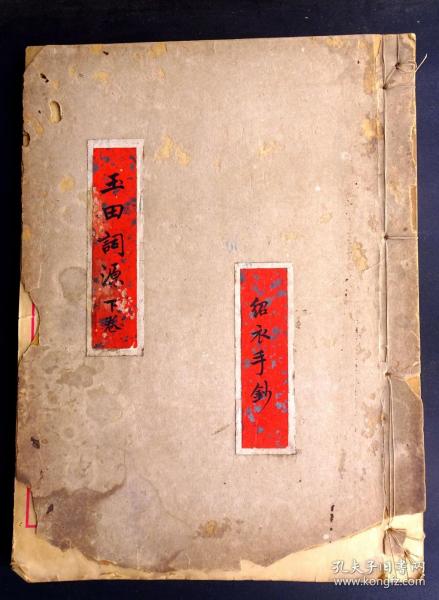 玉田詞源下卷
紹衣手鈔
孔夫子旧书网
www.kongfz.com